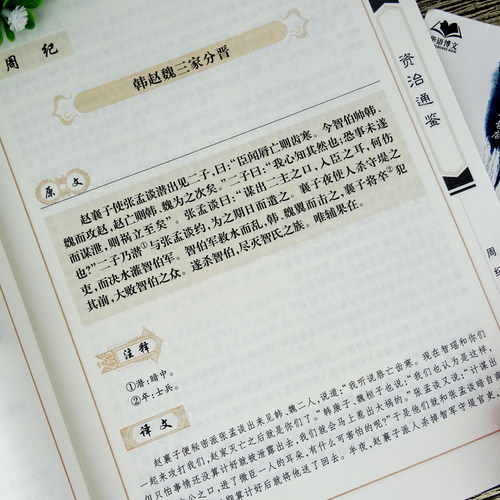 周 纪
韩赵魏三家分晋
原 文
赵襄子使张孟谈潜出见二子，曰：“臣闻唇亡则齿寒。今智伯帅韩、
魏而攻赵，赵亡则韩、魏为之次矣。”二子曰：“我心知其然也；恐事未遂
而谋泄，则祸立至矣”。张孟谈曰：“谋出二主之口，入臣之耳，何伤
也？”二子乃潜①与张孟谈约，为之期日而遣之。襄子夜使人杀守堤之
吏，而决水灌智伯军。智伯军救水而乱，韩、魏翼而击之，襄子将卒②犯
其前，大败智伯之众。遂杀智伯，尽灭智氏之族。唯辅果在。
注 释
①潜：暗中。
②卒：士兵。
译 文
赵襄子便秘密派张孟谈出来见韩、魏二人，说道：“我听说唇亡齿寒。现在智瑶和你们
一起来攻打我们，赵家灭亡之后就是你们了。”韩康子、魏桓子也说：“我们也认为是这样，
但只怕事情还没算计好就被泄露出去，我们就会马上惹出大祸的。”张孟谈又说：“计谋出
之口，进了微臣一人的耳朵，有什么可害怕的呢？”于是他们就和张孟谈暗自商
期算计好后就将他送了回去。半夜，赵襄子派人杀掉智军守堤官吏，
资治通鉴
华语博文
周 纪